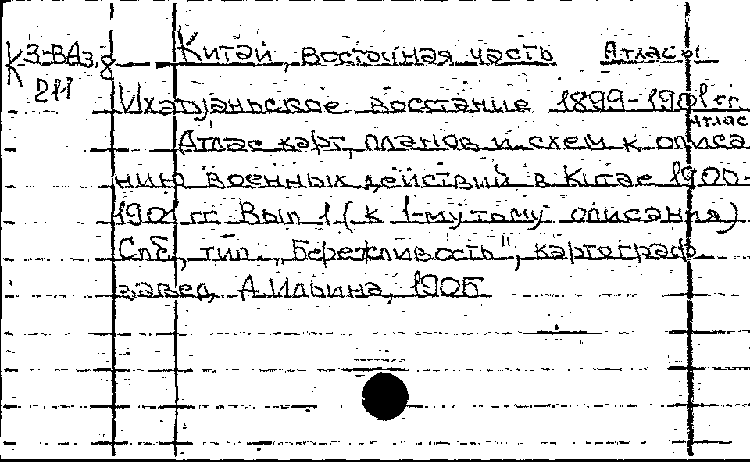 К З-ВАз,8 Китай, восточная часть Атласы
2И1
Ихэтуаньское восстание 1899-1901 гг. Атлас
Атлас карт, планов и схем к описа
нию военных действий в Китае 1900-
1901 гг. Вып 1 (к 1-му тому описания)
Спб, тип. „Бережливость", картограф
завед. А. Ильина, 1905